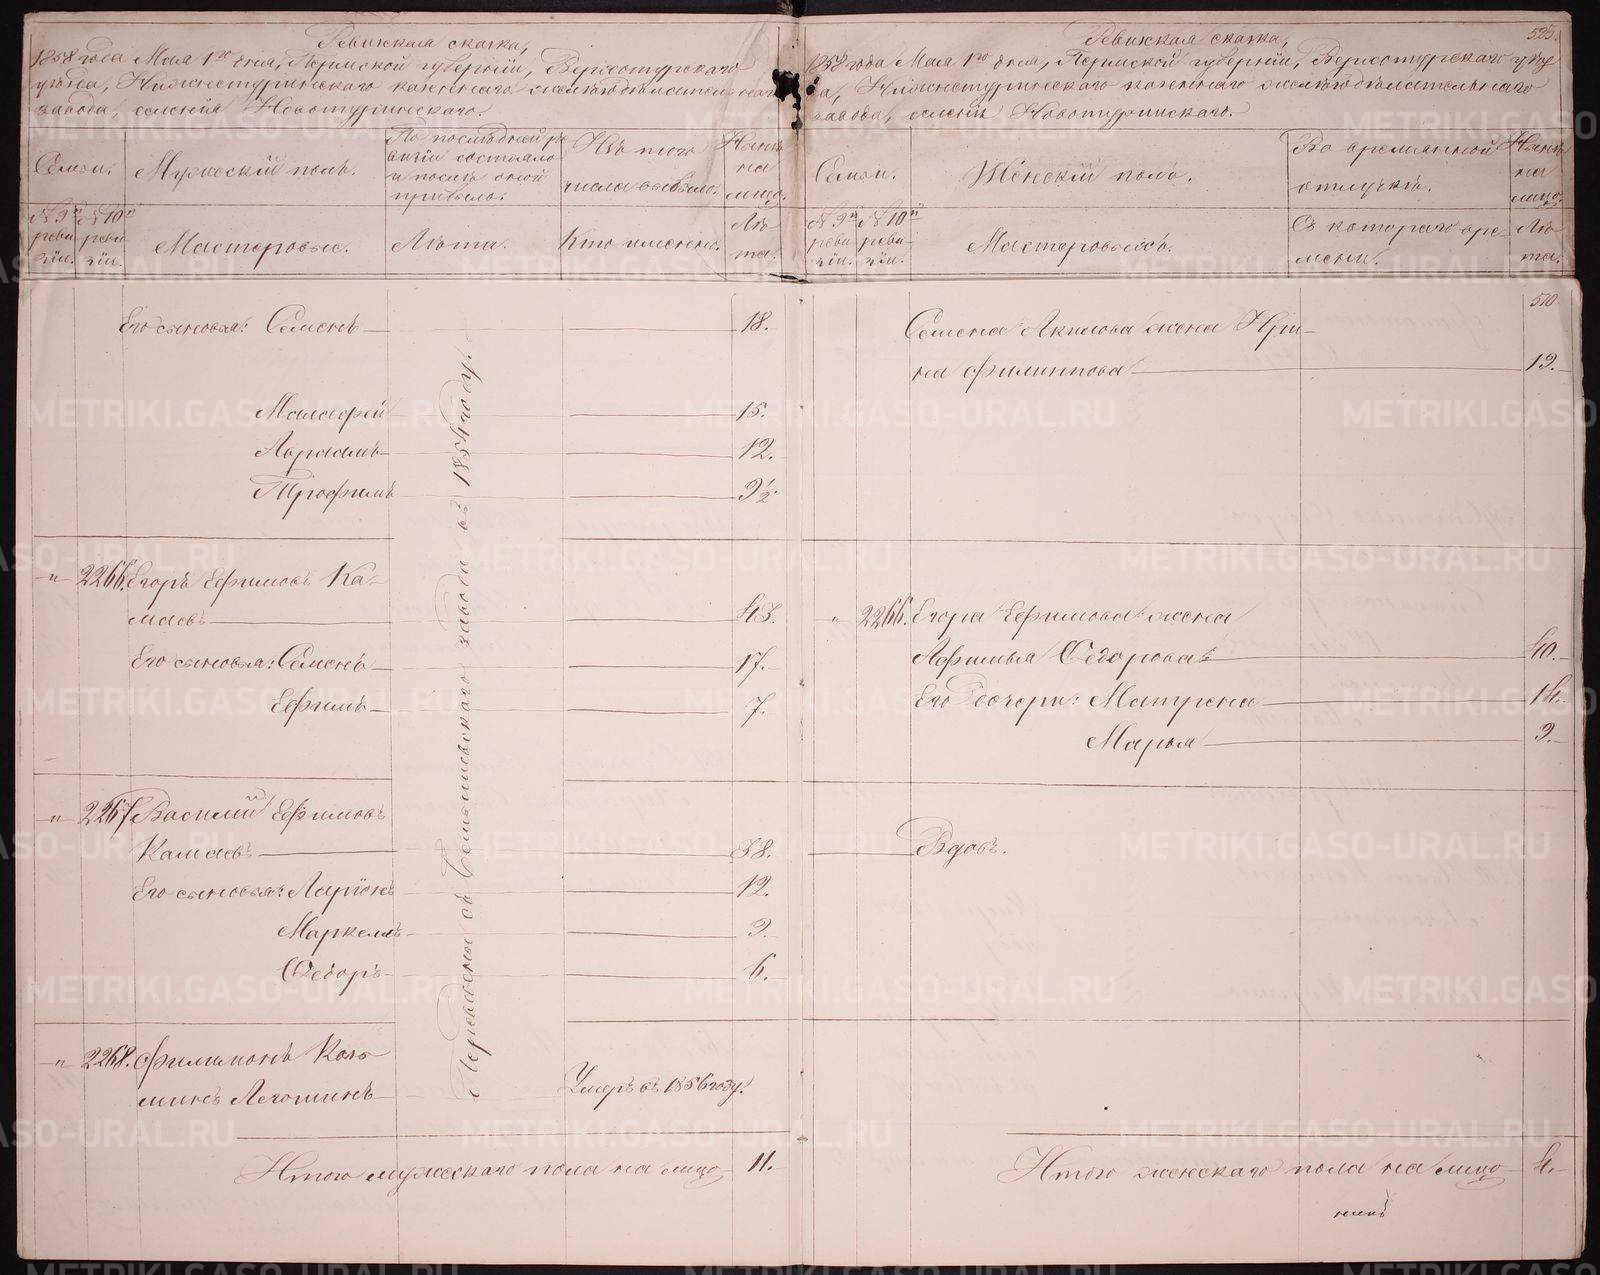 Ревижская сказка,
1858 года Мая 1го дня, Пермской губерніи, Верхотурскаго
уѣзда, Нижнетуринскаго казеннаго желѣзодѣлательнаго
завода, селенія Новотуринскаго.
Семьи.
Мужескій полъ.
По послѣдней ре
визіи состояло
и послѣ оной
прибыло.
Изъ того
числа выбыло.
Нынѣ
на
лицо.
№ 9й
реви
зіи.
№ 10й
реви
зіи.
Мастеровые.
Лѣта.
Кто именно.
Лѣ
та.
Его сыновья: Семенъ 18.
Малафей 15.
Авраамъ 12.
Трофимъ 9½.
„ 2266. Егоръ Ефимовъ Ка-
маевъ 43.
Его сыновья: Семенъ 17.
Ефимъ 7.
„ 2267 Василий Ефимовъ
Камаевъ 38.
Его сыновья: Ларіонъ 12.
Маркелъ 9.
Ѳедоръ 6.
„ 2268. Филимонъ Козь
минъ Легошинъ Умеръ въ 1856 году.
завода въ 1854 году.
Итого мужескаго пола на лицо 11.
525.
Ревижская сказка,
1858 года Мая 1го дня, Пермской губерніи, Верхотурскаго уѣз
да, Нижнетуринскаго казеннаго желѣзодѣлательнаго
завода, селенія Новотуринскаго.
Семьи.
Женскій полъ.
Во временной
отлучкѣ.
Нынѣ
на
лицо.
№ 9й
реви
зіи.
№ 10й
реви-
зіи.
Мастеровыхъ.
Съ котораго вре
мени.
Лѣ
та.
510.
Семена Акилова жена Ири-
на Филиппова 19.
„ 2266. Егора Ефимова жена
Афимья Ѳедорова 40.
Его дочери: Матрена 14.
Марья 9.
Вдовъ.
Итого женскаго пола на лицо 4.
METRIKI.GASO-URAL.RU